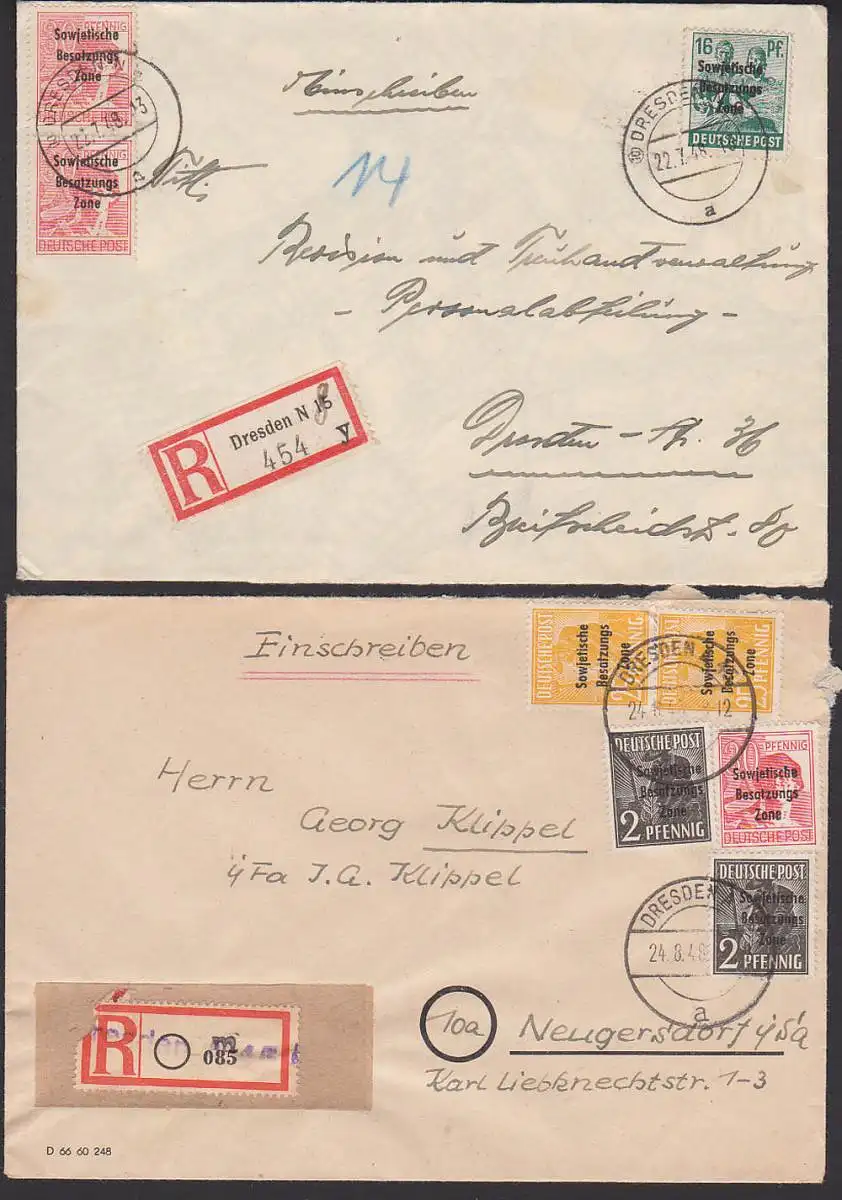 PFENNIG
Sowjetische
Besatzungs
Zone
PFENNIG
Sowjetische
Besatzungs
Zone
DEUTSCHE POST
DRESDEN N
22.7.48. 13
a
Einschreiben
14
16 Pf.
Sowjetische
Besatzungs
Zone
DEUTSCHE POST
DRESDEN
22.7.48.
a
Revision und Treuhandverwaltung
- Personalabteilung -
Dresden - A. 36
R
Dresden N 15 8
454 y
Einschreiben
DEUTSCHE POST
Sowjetische
Besatzungs
Zone
PFENNIG
DEUTSCHE POST
Sowjetische
Besatzungs
Zone
25 PFENNIG
DRESDEN
12
DEUTSCHE POST
Sowjetische
Besatzungs
Zone
2 PFENNIG
PFENNIG
Sowjetische
Besatzungs
Zone
DEUTSCHE POST
DEUTSCHE POST
Sowjetische
Besatzungs
Zone
2 PFENNIG
DRESDEN
24.8.48
a
Herrn
Georg Klippel
i/Fa J.A. Klippel
10a Neugersdorf i/Sa
Karl Liebknechtstr. 1-3
R
m
085
D 66 60 248